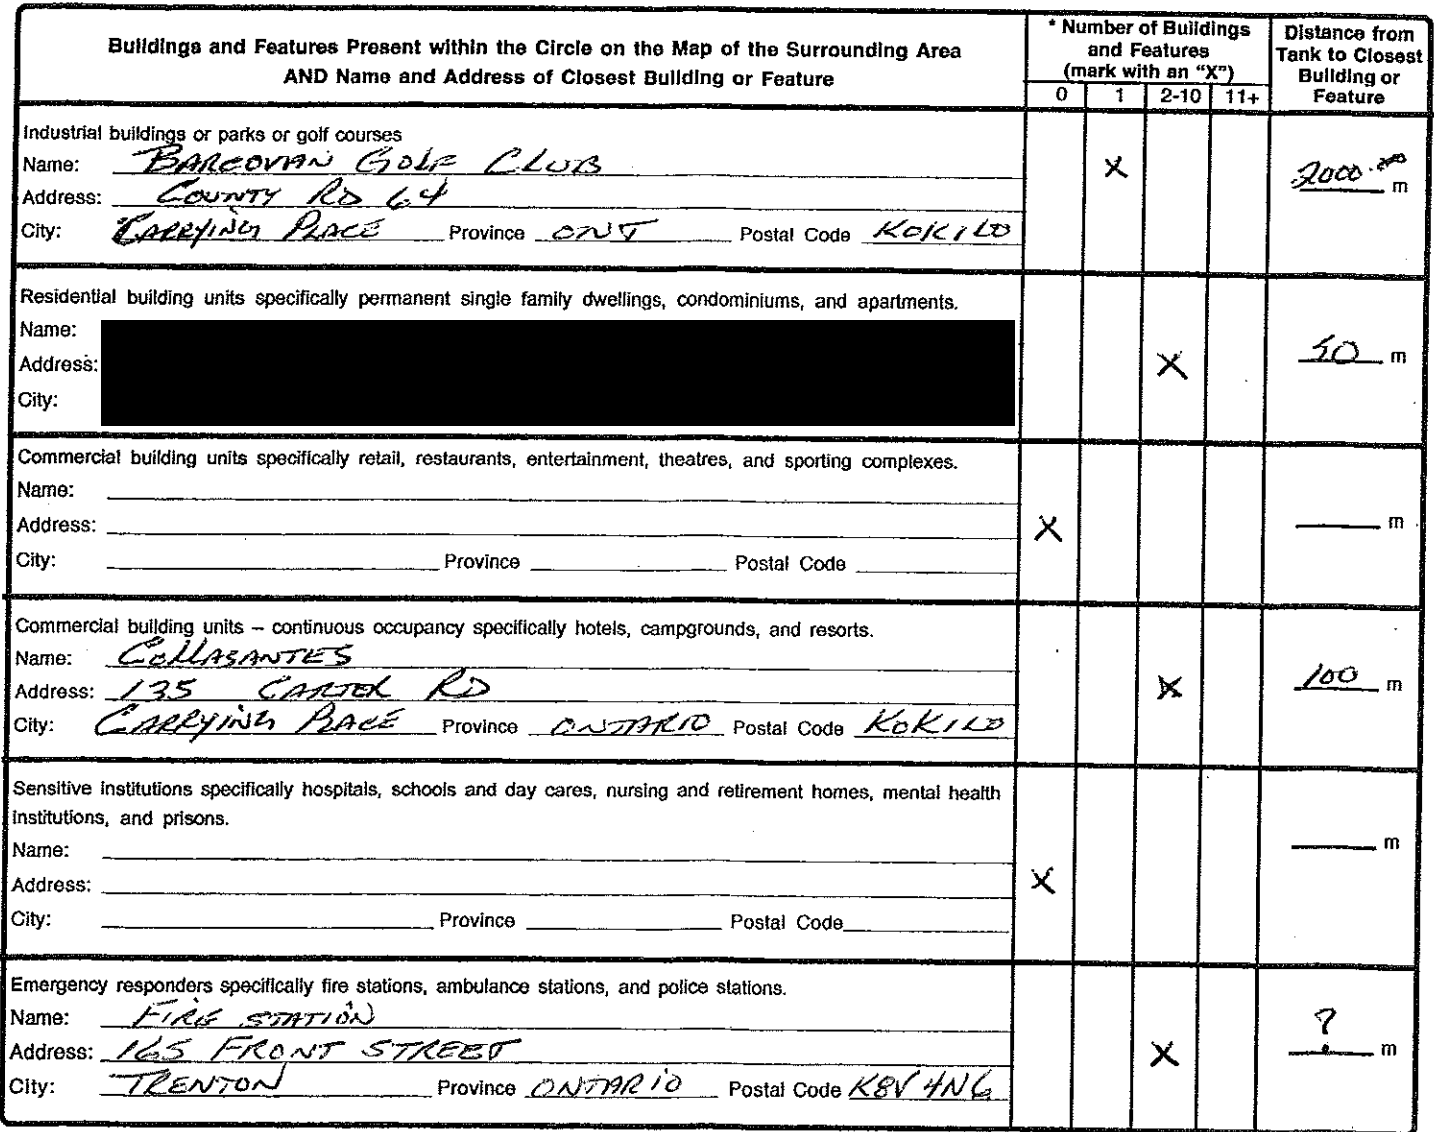 Buildings and Features Present within the Circle on the Map of the Surrounding Area
AND Name and Address of Closest Building or Feature
* Number of Buildings
and Features
(mark with an "X")
0 1 2-10 11+
Distance from
Tank to Closest
Building or
Feature
Industrial buildings or parks or golf courses
Name: BARCOVAN GOLF CLUB
Address: COUNTY RD 64
City: CARRYING PLACE Province ONT Postal Code K0K1L0
X
2000.00 m
Residential building units specifically permanent single family dwellings, condominiums, and apartments.
Name:
Address:
City:
X
50 m
Commercial building units specifically retail, restaurants, entertainment, theatres, and sporting complexes.
Name:
Address:
City: Province Postal Code
X
m
Commercial building units – continuous occupancy specifically hotels, campgrounds, and resorts.
Name: COLLASANTES
Address: 135 CARTER RD
City: CARRYING PLACE Province ONTARIO Postal Code K0K1L0
X
100 m
Sensitive institutions specifically hospitals, schools and day cares, nursing and retirement homes, mental health
institutions, and prisons.
Name:
Address:
City: Province Postal Code
X
m
Emergency responders specifically fire stations, ambulance stations, and police stations.
Name: FIRE STATION
Address: 165 FRONT STREET
City: TRENTON Province ONTARIO Postal Code K8V 4N6
X
? m